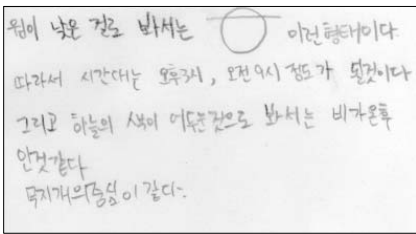 원이 낮은 걸로 봐서는 이런형태이다.
따라서 시간대는 오후3시, 오전9시 정도가 될것이다
그리고 하늘의 색이 어두운것으로 봐서는 비가온후
인것같다
무지개의중심이 같다.